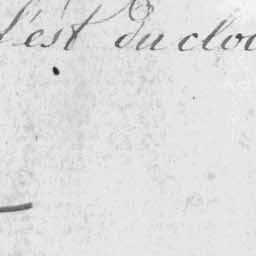 l'est du cloc